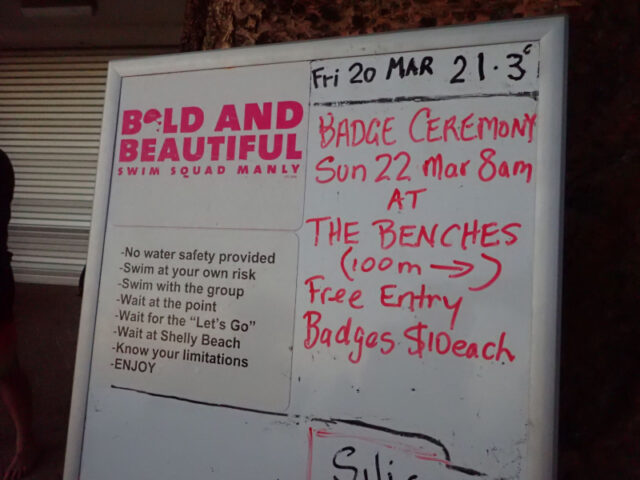 Fri 20 MAR 21.3°
BOLD AND
BEAUTIFUL
SWIM SQUAD MANLY
BADGE CEREMONY
Sun 22 Mar 8am
AT
THE BENCHES
(100m →)
Free Entry
Badges $10 each
-No water safety provided
-Swim at your own risk
-Swim with the group
-Wait at the point
-Wait for the “Let's Go”
-Wait at Shelly Beach
-Know your limitations
-ENJOY